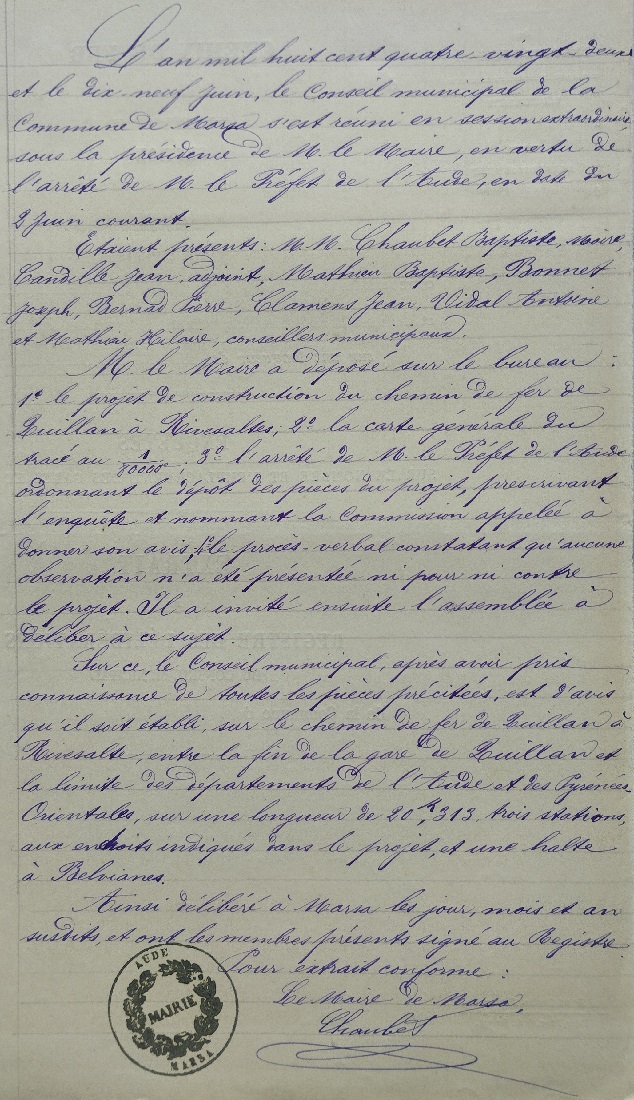 L'an mil huit cent quatre-vingt-deux
et le dix-neuf juin, le Conseil municipal de la
Commune de Marsa s'est réuni en session extraordinaire
sous la présidence de M. le Maire, en vertu de
l'arrêté de M. le Préfet de l'Aude, en date du
2 juin courant.
Etaient présents: M.M. Chaubet Baptiste, maire,
Candille Jean adjoint, Mathieu Baptiste, Bonnet
Joseph, Bernad Pierre, Clamens Jean, Vidal Antoine
et Mathieu Hilaire, conseillers municipaux.
M. le Maire a déposé sur le bureau :
1º le projet de construction du chemin de fer de
Quillan à Rivesaltes; 2º la carte générale du
tracé au 1/80000e; 3º l'arrêté de M. le Préfet de l'Aude
ordonnant le dépôt des pièces du projet, prescrivant
l'enquête et nommant la Commission appelée à
donner son avis; 4º le procès-verbal constatant qu'aucune
observation n'a été présentée ni pour ni contre
le projet. Il a invité ensuite l'assemblée à
déliber à ce sujet.
Sur ce, le Conseil municipal, après avoir pris
connaissance de toutes les pièces précitées, est d'avis
qu'il soit établi, sur le chemin de fer de Quillan à
Rivesalte, entre la fin de la gare de Quillan et
la limite des départements de l'Aude et des Pyrénées-
Orientales, sur une longueur de 20k,313, trois stations,
aux endroits indiqués dans le projet, et une halte
à Belvianes.
Ainsi délibéré à Marsa les jour, mois et an
susdits, et ont les membres présents signé au Registre.
Pour extrait conforme :
Le Maire de Marsa,
Chaubet
AUDE
MAIRIE
MARSA